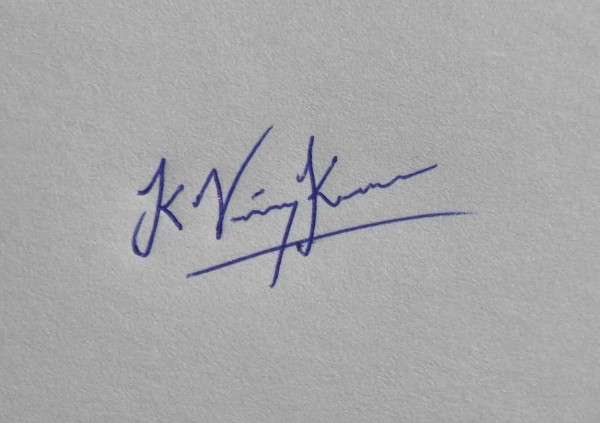 K Vinay Kumar